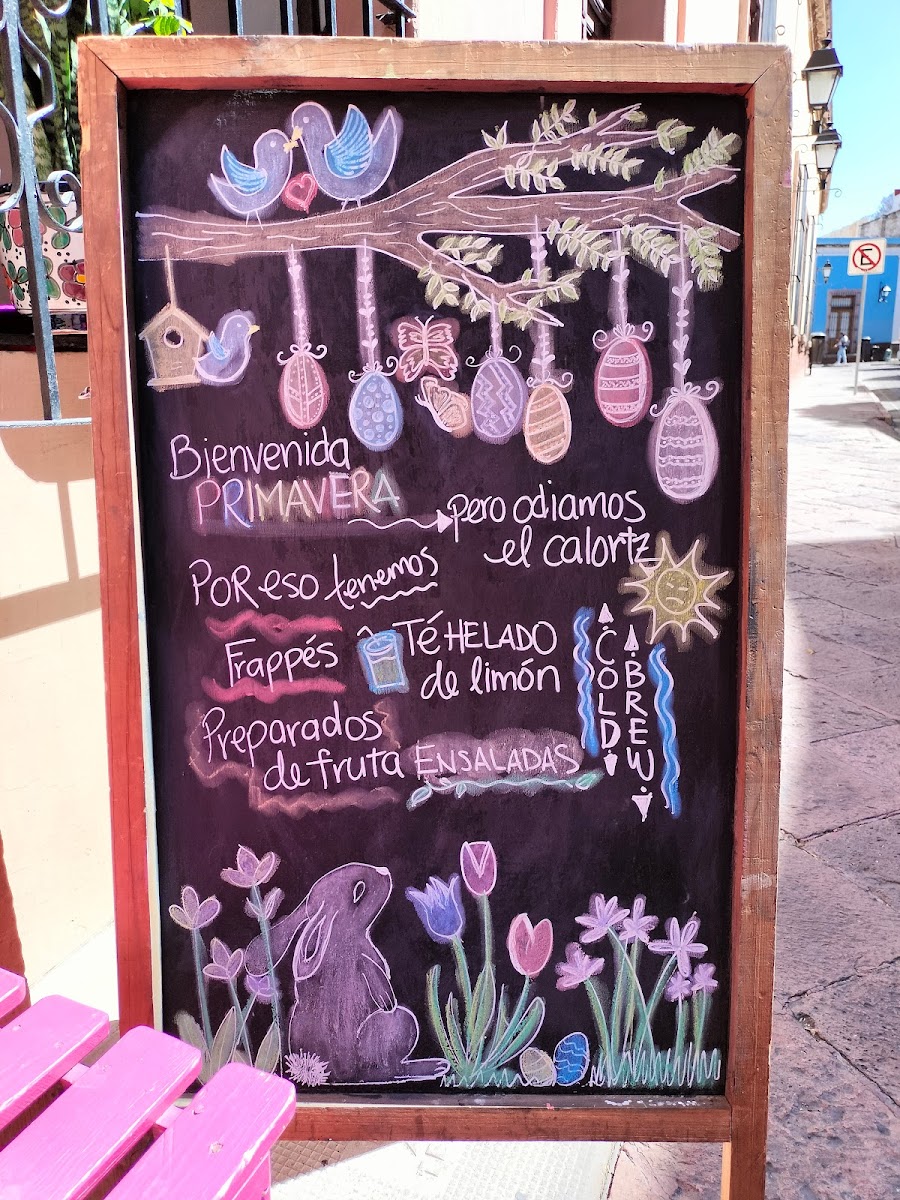 Bienvenida
PRIMAVERA
pero odiamos
el calortz
POR eso tenemos
Frappés
TÉ HELADO
de limón
COLD
BREW
Preparados
de fruta
ENSALADAS
E